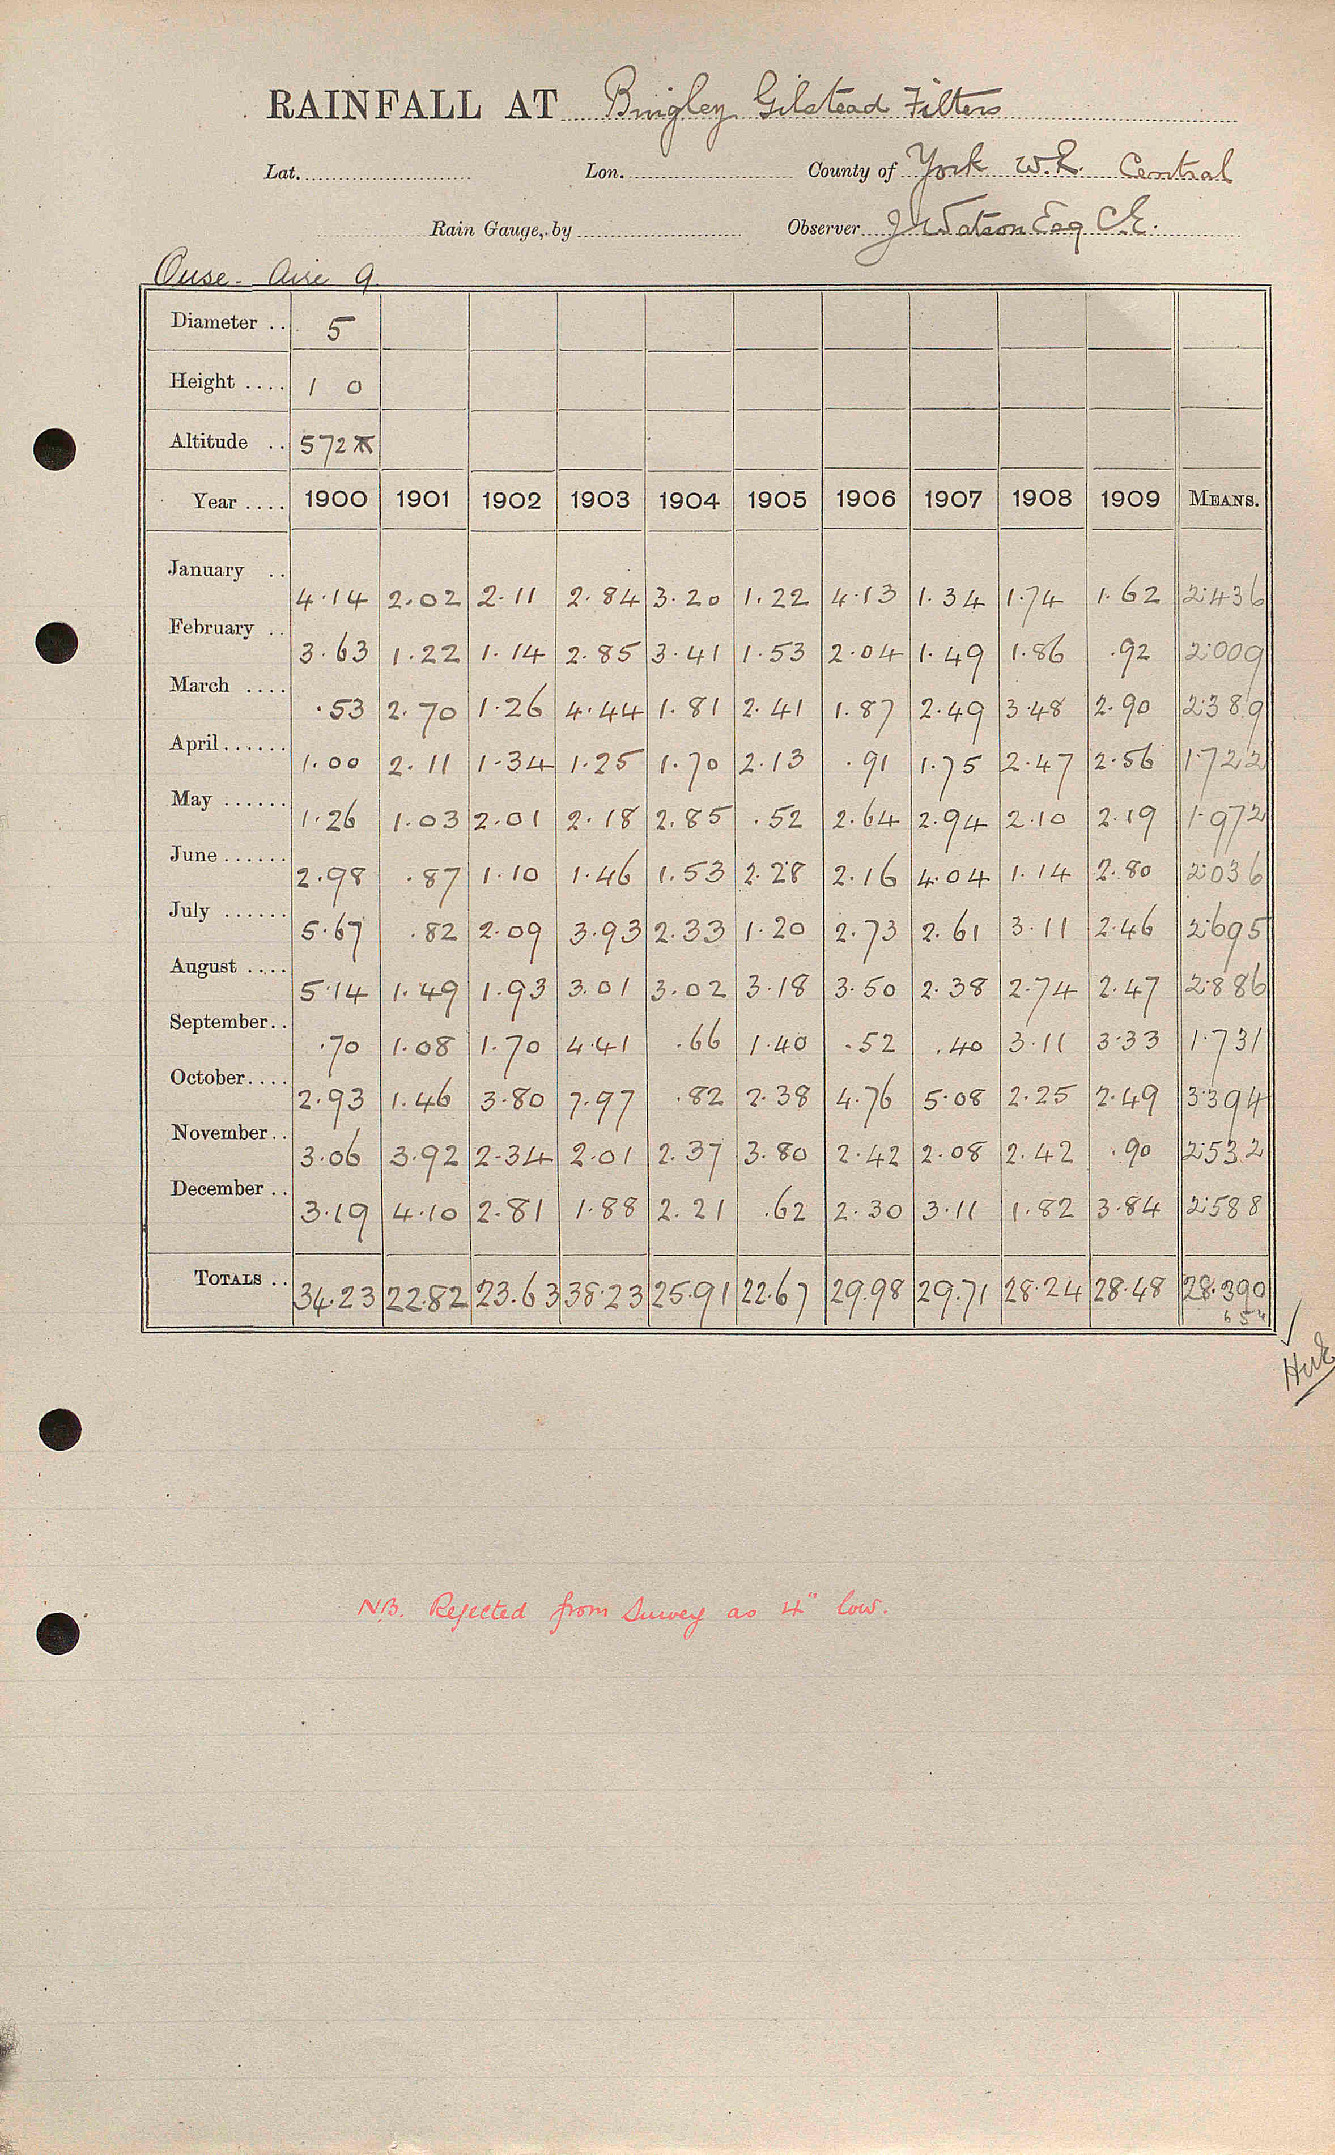 RAINFALL AT Bingley Gilstead Filters
Lat. Lon. County of York W.R. Central
Rain Gauge, by Observer J Watson Esq C.E.
Ouse - Aire 9.
Diameter .. 5
Height .... 1 0
Altitude .. 572
Year .... 1900 1901 1902 1903 1904 1905 1906 1907 1908 1909 MEANS.
January .. 4.14 2.02 2.11 2.84 3.20 1.22 4.13 1.34 1.74 1.62 2.436
February .. 3.63 1.22 1.14 2.85 3.41 1.53 2.04 1.49 1.86 .92 2.009
March .... .53 2.70 1.26 4.44 1.81 2.41 1.87 2.49 3.48 2.90 2.389
April...... 1.00 2.11 1.34 1.25 1.70 2.13 .91 1.75 2.47 2.56 1.722
May ...... 1.26 1.03 2.01 2.18 2.85 .52 2.64 2.94 2.10 2.19 1.972
June ...... 2.98 .87 1.10 1.46 1.53 2.28 2.16 4.04 1.14 2.80 2.036
July ...... 5.67 .82 2.09 3.93 2.33 1.20 2.73 2.61 3.11 2.46 2.695
August .... 5.14 1.49 1.93 3.01 3.02 3.18 3.50 2.38 2.74 2.47 2.886
September.. .70 1.08 1.70 4.41 .66 1.40 .52 .40 3.11 3.33 1.731
October.... 2.93 1.46 3.80 7.97 .82 2.38 4.76 5.08 2.25 2.49 3.394
November.. 3.06 3.92 2.34 2.01 2.37 3.80 2.42 2.08 2.42 .90 2.532
December .. 3.19 4.10 2.81 1.88 2.21 .62 2.30 3.11 1.82 3.84 2.588
TOTALS .. 34.23 22.82 23.63 38.23 25.91 22.67 29.98 29.71 28.24 28.48 28.390
N.B. Rejected from Survey as 4" low.